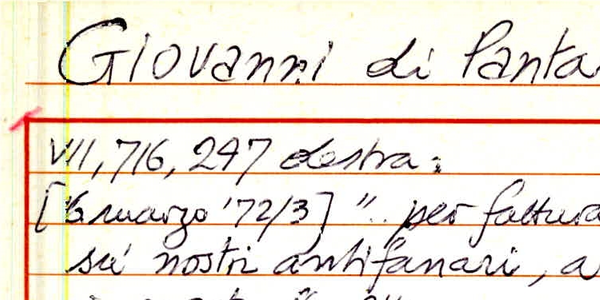 Giovanni di Panta
VII, 716, 247 destra:
["6 marzo '72/3] ".. per fattura
su' nostri antifanari, a